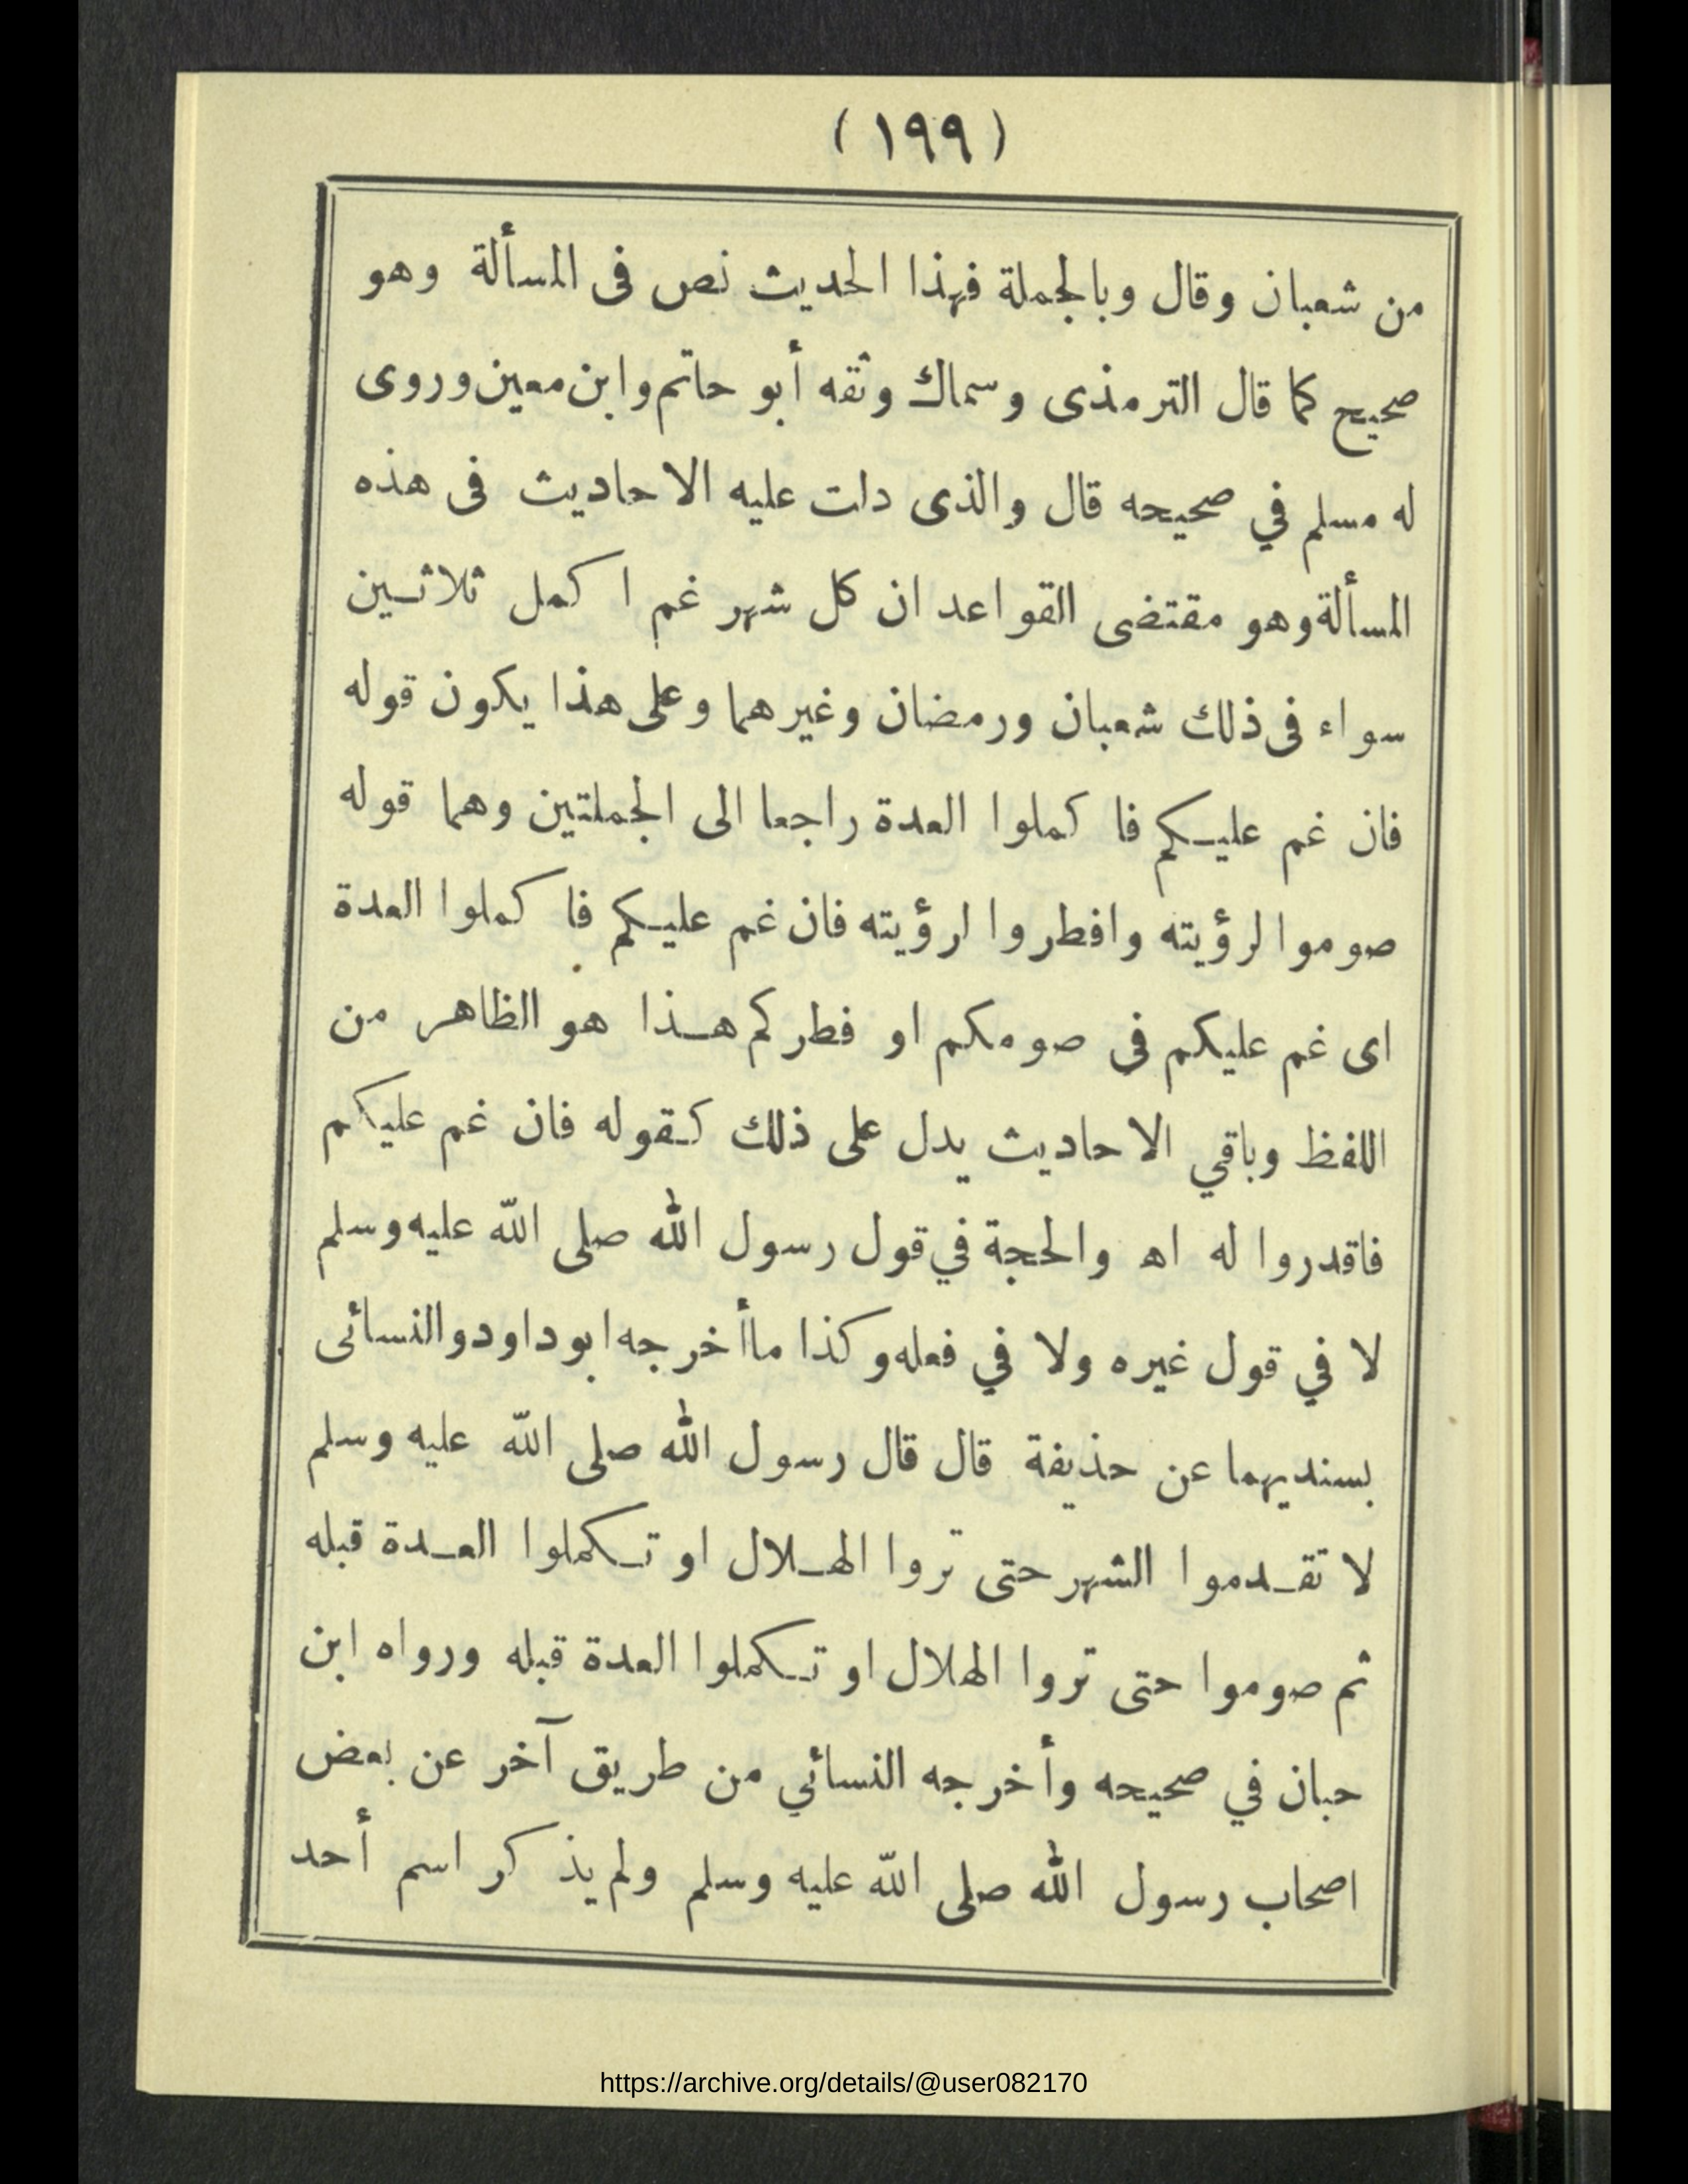 (١٩٩)
من شعبان وقال وبالجملة فهذا الحديث نص فى المسألة وهو
صحيح كما قال الترمذى وسماك وثقه أبو حاتم وابن معين وروى
له مسلم في صحيحه قال والذى دلت عليه الاحاديث فى هذه
المسألة وهو مقتضى القواعد ان كل شهر غم اكمل ثلاثين
سواء فى ذلك شعبان ورمضان وغيرهما وعلى هذا يكون قوله
فان غم عليكم فاكملوا العدة راجعا الى الجملتين وهما قوله
صوموا لرؤيته وافطروا لرؤيته فان غم عليكم فاكملوا العدة
اى غم عليكم فى صومكم او فطركم هذا هو الظاهر من
اللفظ وباقي الاحاديث يدل على ذلك كقوله فان غم عليكم
فاقدروا له اه والحجة في قول رسول الله صلى الله عليه وسلم
لا في قول غيره ولا في فعله وكذا ماأخرجه ابوداود والنسائى
بسنديهما عن حذيفة قال قال رسول الله صلى الله عليه وسلم
لا تقدموا الشهر حتى تروا الهلال او تكملوا العدة قبله
ثم صوموا حتى تروا الهلال او تكملوا العدة قبله ورواه ابن
حبان في صحيحه وأخرجه النسائي من طريق آخر عن بعض
اصحاب رسول الله صلى الله عليه وسلم ولم يذكر اسم أحد
https://archive.org/details/@user082170